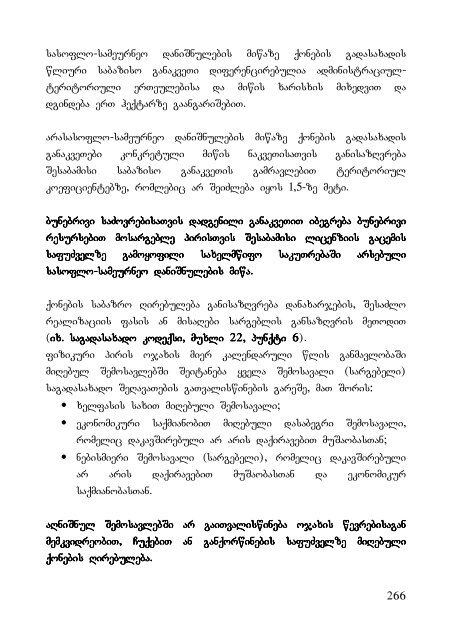 სასოფლო-სამეურნეო დანიშნულების მიწაზე ქონების გადასახადის
წლიური საბაზისო განაკვეთი დიფერენცირებულია ადმინისტრაციულ-
ტერიტორიული ერთეულებისა და მიწის ხარისხის მიხედვით და
დგინდება ერთ ჰექტარზე გაანგარიშებით.
არასასოფლო-სამეურნეო დანიშნულების მიწაზე ქონების გადასახადის
განაკვეთები კონკრეტული მიწის ნაკვეთისათვის განისაზღვრება
შესაბამისი საბაზისო განაკვეთის გამრავლებით ტერიტორიულ
კოეფიციენტებზე, რომლებიც არ შეიძლება იყოს 1,5-ზე მეტი.
ბუნებრივი საძოვრებისათვის დადგენილი განაკვეთით იბეგრება ბუნებრივი
რესურსებით მოსარგებლე პირისთვის შესაბამისი ლიცენზიის გაცემის
საფუძველზე გამოყოფილი სახელმწიფო საკუთრებაში არსებული
სასოფლო-სამეურნეო დანიშნულების მიწა.
ქონების საბაზრო ღირებულება განისაზღვრება დანახარჯების, შესაძლო
რეალიზაციის ფასის ან მისაღები სარგებლის განსაზღვრის მეთოდით
(იხ. საგადასახადო კოდექსი, მუხლი 22, პუნქტი 6).
ფიზიკური პირის ოჯახის მიერ კალენდარული წლის განმავლობაში
მიღებულ შემოსავლებში შეიტანება ყველა შემოსავალი (სარგებელი)
საგადასახადო შეღავათების გათვალისწინების გარეშე, მათ შორის:
• ხელფასის სახით მიღებული შემოსავალი;
• ეკონომიკური საქმიანობით მიღებული დასაბეგრი შემოსავალი,
რომელიც დაკავშირებული არ არის დაქირავებით მუშაობასთან;
• ნებისმიერი შემოსავალი (სარგებელი), რომელიც დაკავშირებული
არ არის დაქირავებით მუშაობასთან და ეკონომიკურ
საქმიანობასთან.
აღნიშნულ შემოსავლებში არ გაითვალისწინება ოჯახის წევრებისაგან
მემკვიდრეობით, ჩუქებით ან განქორწინების საფუძველზე მიღებული
ქონების ღირებულება.
266